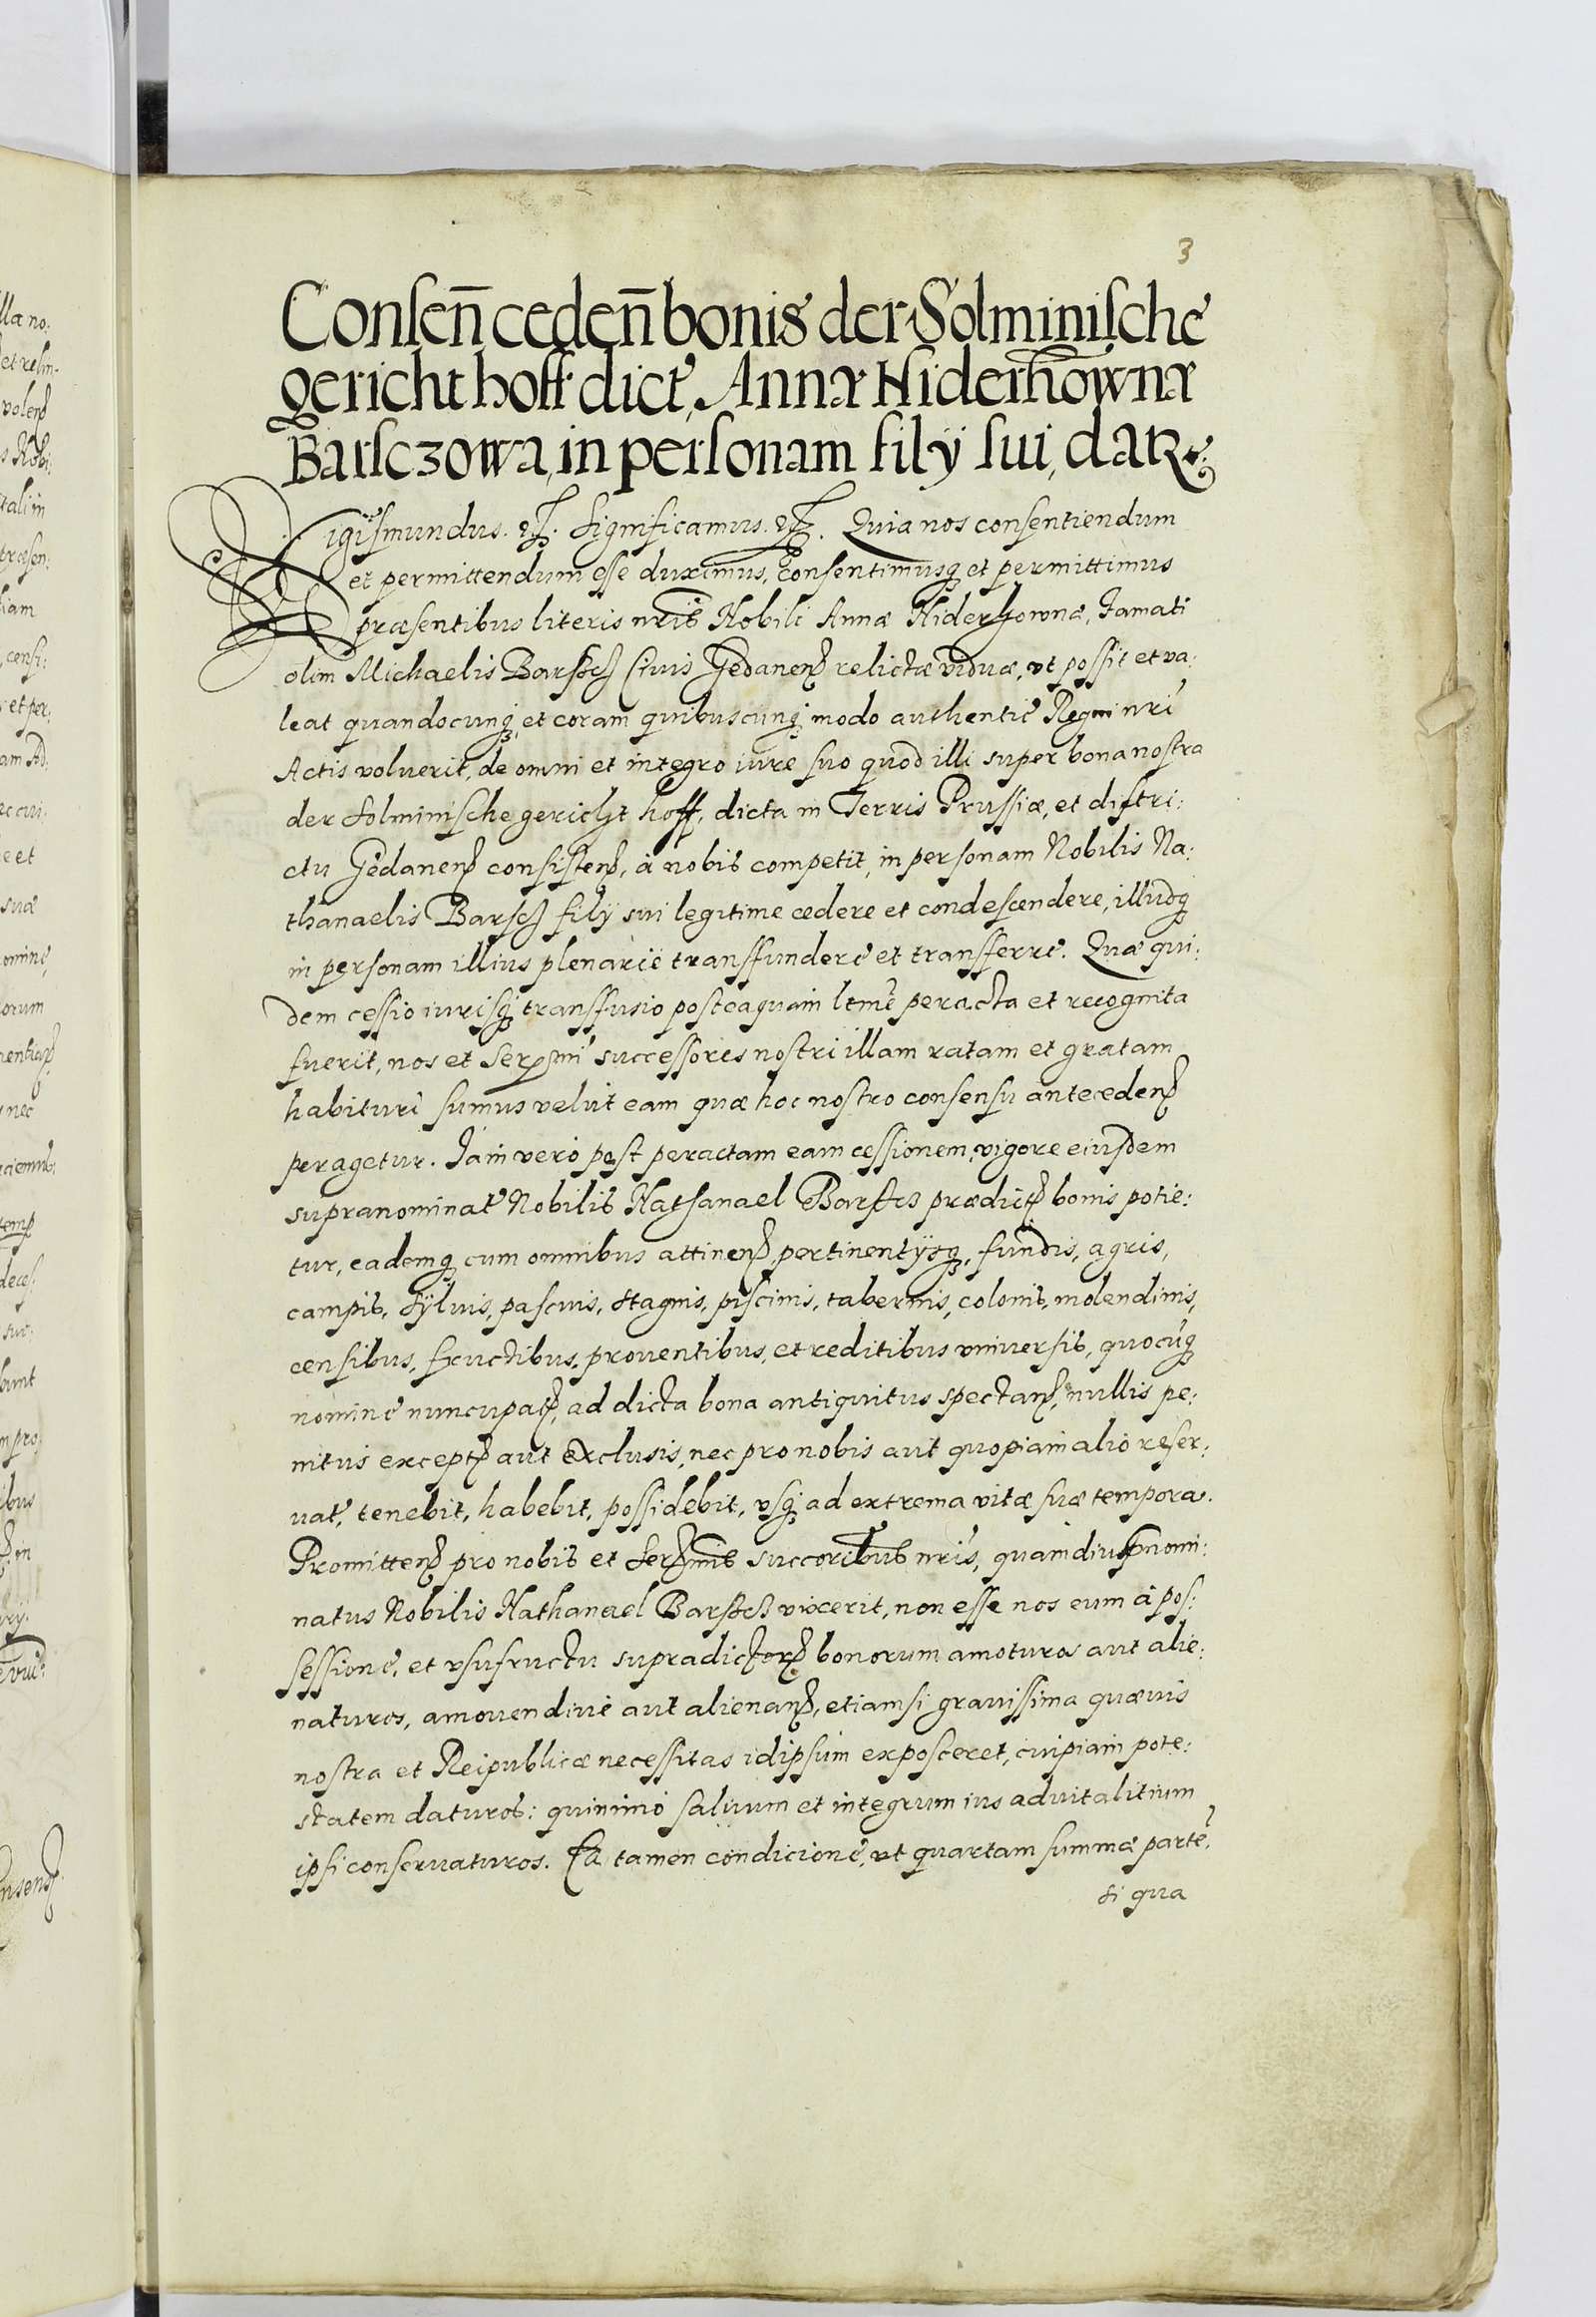 3
Consen̄ ceden̄ bonis der Solminische
gericht hoff dict, Annæ Niderhowna
Barsczowa, in personam filÿ sui, datR
Sigismundus. etc. Significamus. etc. Quia nos consentiendum
et permittendum esse duximus, consentimusq et permittimus
præsentibus literis nris Nobili Annæ Niderhownæ, Famati
olim Michaelis Barsch Ciuis Gedanen relictæ viduæ, vt possit et va:
leat quandocunq, et coram quibuscunq modo authentic Regni nri
Actis voluerit, de omni et integro iure suo quod illi super bona nostra
der Solminische gericht hoff, dicta in Terris Prussiæ, et distri:
ctu Gedanen consisten, à nobis competit, in personam Nobilis Na:
thanaelis Barsch filÿ sui legitime cedere et condescendere, illudq
in personam illius plenarie transfundere et transferre. Quæ qui:
dem cessio iurisq transfusio posteaquam ltme peracta et recognita
fuerit, nos et Serenmi successores nostri illam ratam et gratam
habituri sumus velut eam quæ hoc nostro consensu anteceden
peragetur. Iam vero post peractam eam cessionem, vigore eiusdem
supranominat Nobilis Nathanael Barsch prædict bonis potie:
tur, eademq cum omnibus attinen, pertinentÿsq, fundis, agris,
campis, sÿluis, pascuis, stagnis, piscinis, tabernis, colonis, molendinis,
censibus, fructibus, prouentibus, et reditibus vniuersis, quocuq
nomine nuncupat, ad dicta bona antiquitus spectan, nullis pe:
nitus except aut exclusis, nec pro nobis aut quopiam alio reser:
uat, tenebit, habebit, possidebit, vsq ad extrema vitæ suæ tempora.
Promitten pro nobis et Sermis succoribus nris, quamdiu pnomi:
natus Nobilis Nathanael Barsch vixerit, non esse nos eum à pos:
sessione, et vsufructu supradictor bonorum amoturos aut alie:
naturos, amouendiue aut alienan, etiamsi grauissima quæuis
nostra et Reipublicæ necessitas idipsum exposceret, cuipiam pote:
statem daturos: quinimo saluum et integrum ius aduitalitium
ipsi conseruaturos. Ea tamen condicione, vt quartam summæ parte,
si qua